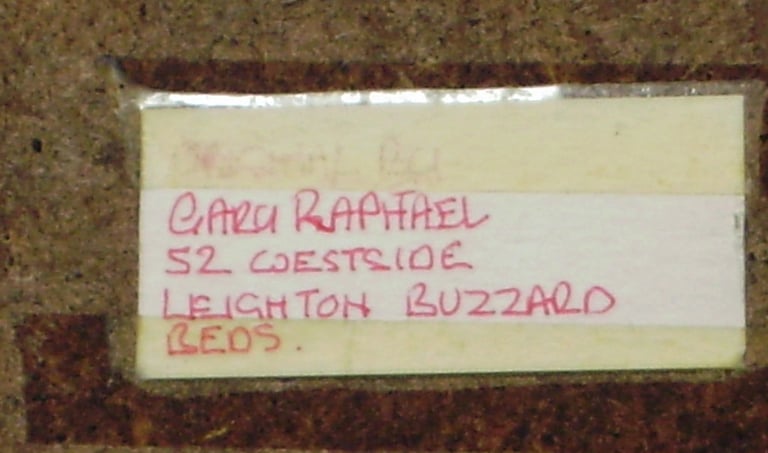 ORIGINAL BY
GARY RAPHAEL
52 WESTSIDE
LEIGHTON BUZZARD
BEDS.